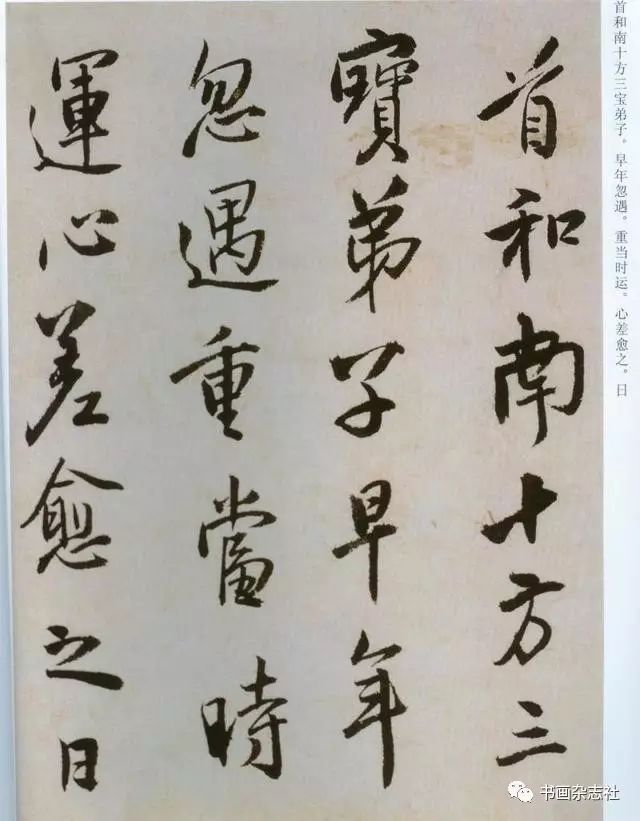 首和南十方三
寶弟子早年
忽遇重當時
運心差愈之日
首和南十方三宝弟子。早年忽遇。重当时运。心差愈之。日
书画杂志社